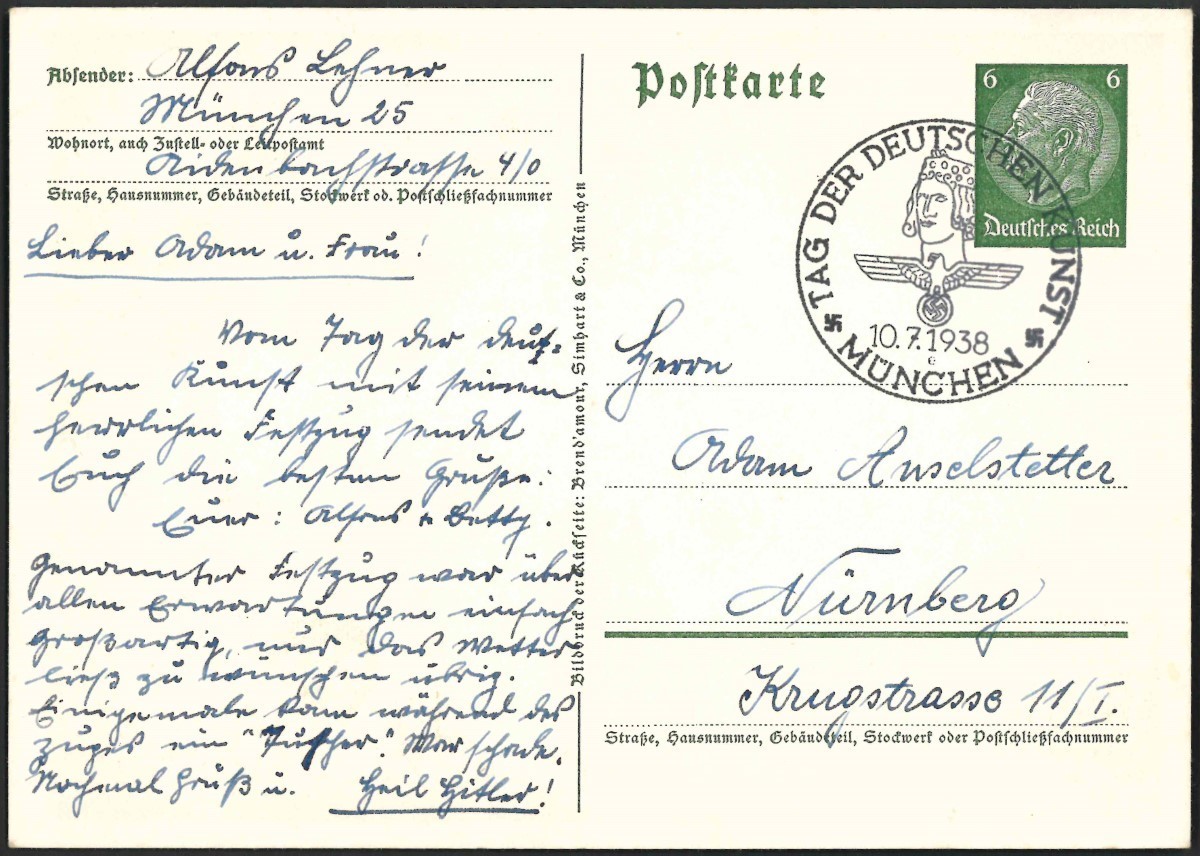 Absender: Alfons Lehner
München 25
Wohnort, auch Zustell- oder Leitpostamt
Aidenbachstrasse 4/0
Straße, Hausnummer, Gebäudeteil, Stockwerk od. Postschließfachnummer
Lieber Adam u. Frau!
Vom Tag der deut-
schen Kunst mit seinem
herrlichen Festzug sendet
Euch die besten Grüße:
Euer: Alfons u Betty.
Genannter Festzug war über
allen Erwartungen einfach
Großartig, nur das Wetter
ließ zu wünschen übrig.
Einigemale kam während des
Zuges ein "Tuscher". War schade.
Nochmal Gruß u. Heil Hitler!
Bilddruck der Rückseite: Brend'amour, Simhart & Co., München
Postkarte
6 6
Deutsches Reich
TAG DER DEUTSCHEN KUNST
10.7.1938
e
MÜNCHEN
Herrn
Adam Anselstetter
Nürnberg
Krugstrasse 11/I.
Straße, Hausnummer, Gebäudeteil, Stockwerk oder Postschließfachnummer